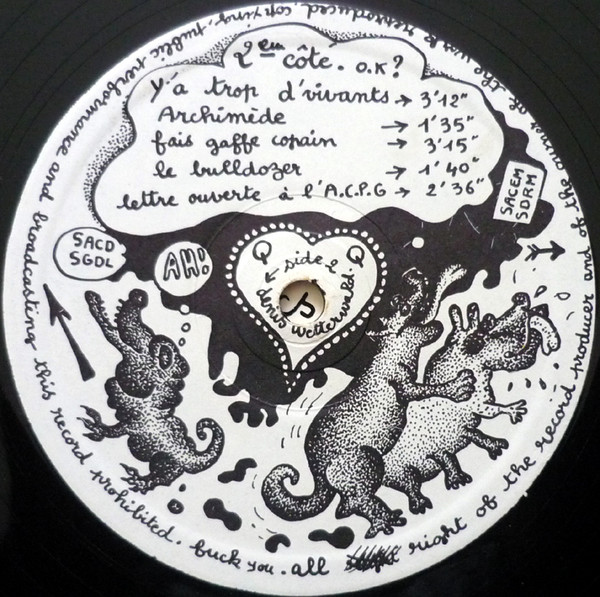 2ème côté. O.K?
y'a trop d'vivants → 3'12"
Archimède → 1'35"
fais gaffe copain → 3'15"
le bulldozer → 1'40"
lettre ouverte à l'A.C.P.G → 2'36"
SACEM
SDRM
SACD
SGDL
AH!
Q Q
side 2
denis wetterwald.
all right of the record producer and of the owner of the work reproduced. copying, public performance and broadcasting this record prohibited. fuck you.